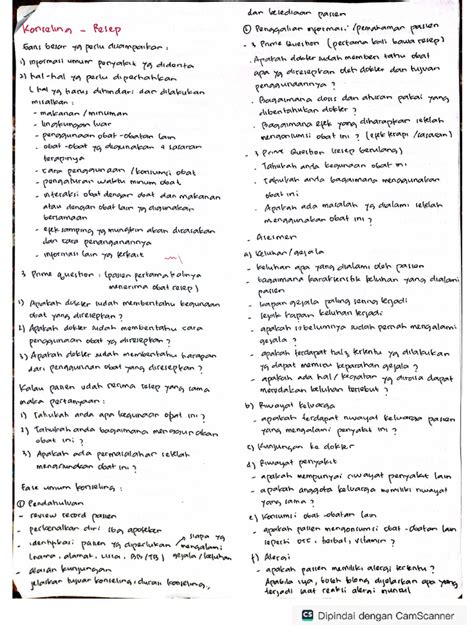 Konseling - Resep
Garis besar yg perlu disampaikan :
1) informasi umum penyakit yg diderita
2) hal-hal yg perlu diperhatikan
( hal yg harus dihindari dan dilakukan
misalkan :
- makanan / minuman
- lingkungan luar
- penggunaan obat-obatan lain
- obat-obat yg digunakan & sasaran
terapinya
- cara penggunaan / konsumsi obat
- pengaturan waktu minum obat
- interaksi obat dengan obat dan makanan
atau dengan obat lain yg digunakan
bersamaan
- efek samping yg mungkin akan dirasakan
dan cara penanganannya
- informasi lain yg terkait
3 Prime question : (pasien pertama kalinya
menerima obat resep)
1) Apakah dokter sudah memberitahu kegunaan
obat yang diresepkan ?
2) Apakah dokter sudah memberitahu cara
penggunaan obat yg diresepkan ?
3) Apakah dokter sudah memberitahu harapan
dari penggunaan obat yang diresepkan ?
Kalau pasien udah nerima resep yang sama
maka pertanyaan :
1) Tahukah anda apa kegunaan obat ini ?
2) Tahukah anda bagaimana menggunakan
obat ini ?
3) Apakah ada permasalahan setelah
menggunakan obat ini ?
Fase umum konseling :
① Pendahuluan
- review record pasien
- perkenalkan diri sbg apoteker
- identifikasi pasien yg diperlukan
(nama, alamat, usia, BB/TB)
siapa yg
mengalami
gejala / keluhan
- alasan kunjungan
jelaskan tujuan konseling, durasi konseling,
dan kesediaan pasien
② Penggalian informasi / pemahaman pasien
- 3 Prime Question (pertama kali bawa resep)
. Apakah dokter sudah memberi tahu obat
apa yg diresepkan oleh dokter dan tujuan
penggunaannya ?
. Bagaimana dosis dan aturan pakai yang
diberitahukan dokter ?
. Bagaimana efek yang diharapkan setelah
mengonsumsi obat ini ? (efek terapi / sasaran)
- 3 Prime Question (resep berulang)
. Tahukah anda kegunaan obat ini
. Tahukah anda bagaimana menggunakan
obat ini
. Apakah ada masalah yg dialami setelah
menggunakan obat ini ?
- Asesmen
a) Keluhan / gejala
- keluhan apa yang dialami oleh pasien
- bagaimana karakteristik keluhan yang dialami
pasien
- kapan gejala paling sering terjadi
- sejak kapan keluhan terjadi
- apakah sebelumnya sudah pernah mengalami
gejala ?
- apakah terdapat hal2 tertentu yg dilakukan
yg dapat memicu keparahan gejala ?
- apakah ada hal / kegiatan yg dirasa dapat
meredakan keluhan tersebut ?
b) Riwayat keluarga
- apakah terdapat riwayat keluarga pasien
yang mengalami penyakit ini ?
c) Kunjungan ke dokter
d) Riwayat penyakit
- apakah mempunyai riwayat penyakit lain
- apakah anggota keluarga memiliki riwayat
yang sama ?
e) Konsumsi obat-obatan lain
- apakah pasien mengonsumsi obat-obatan lain
seperti OTC, herbal, vitamin ?
f) Alergi
- apakah pasien memiliki alergi tertentu ?
Apabila iya, boleh tolong dijelaskan apa yang
terjadi saat reaksi alergi muncul
CS Dipindai dengan CamScanner